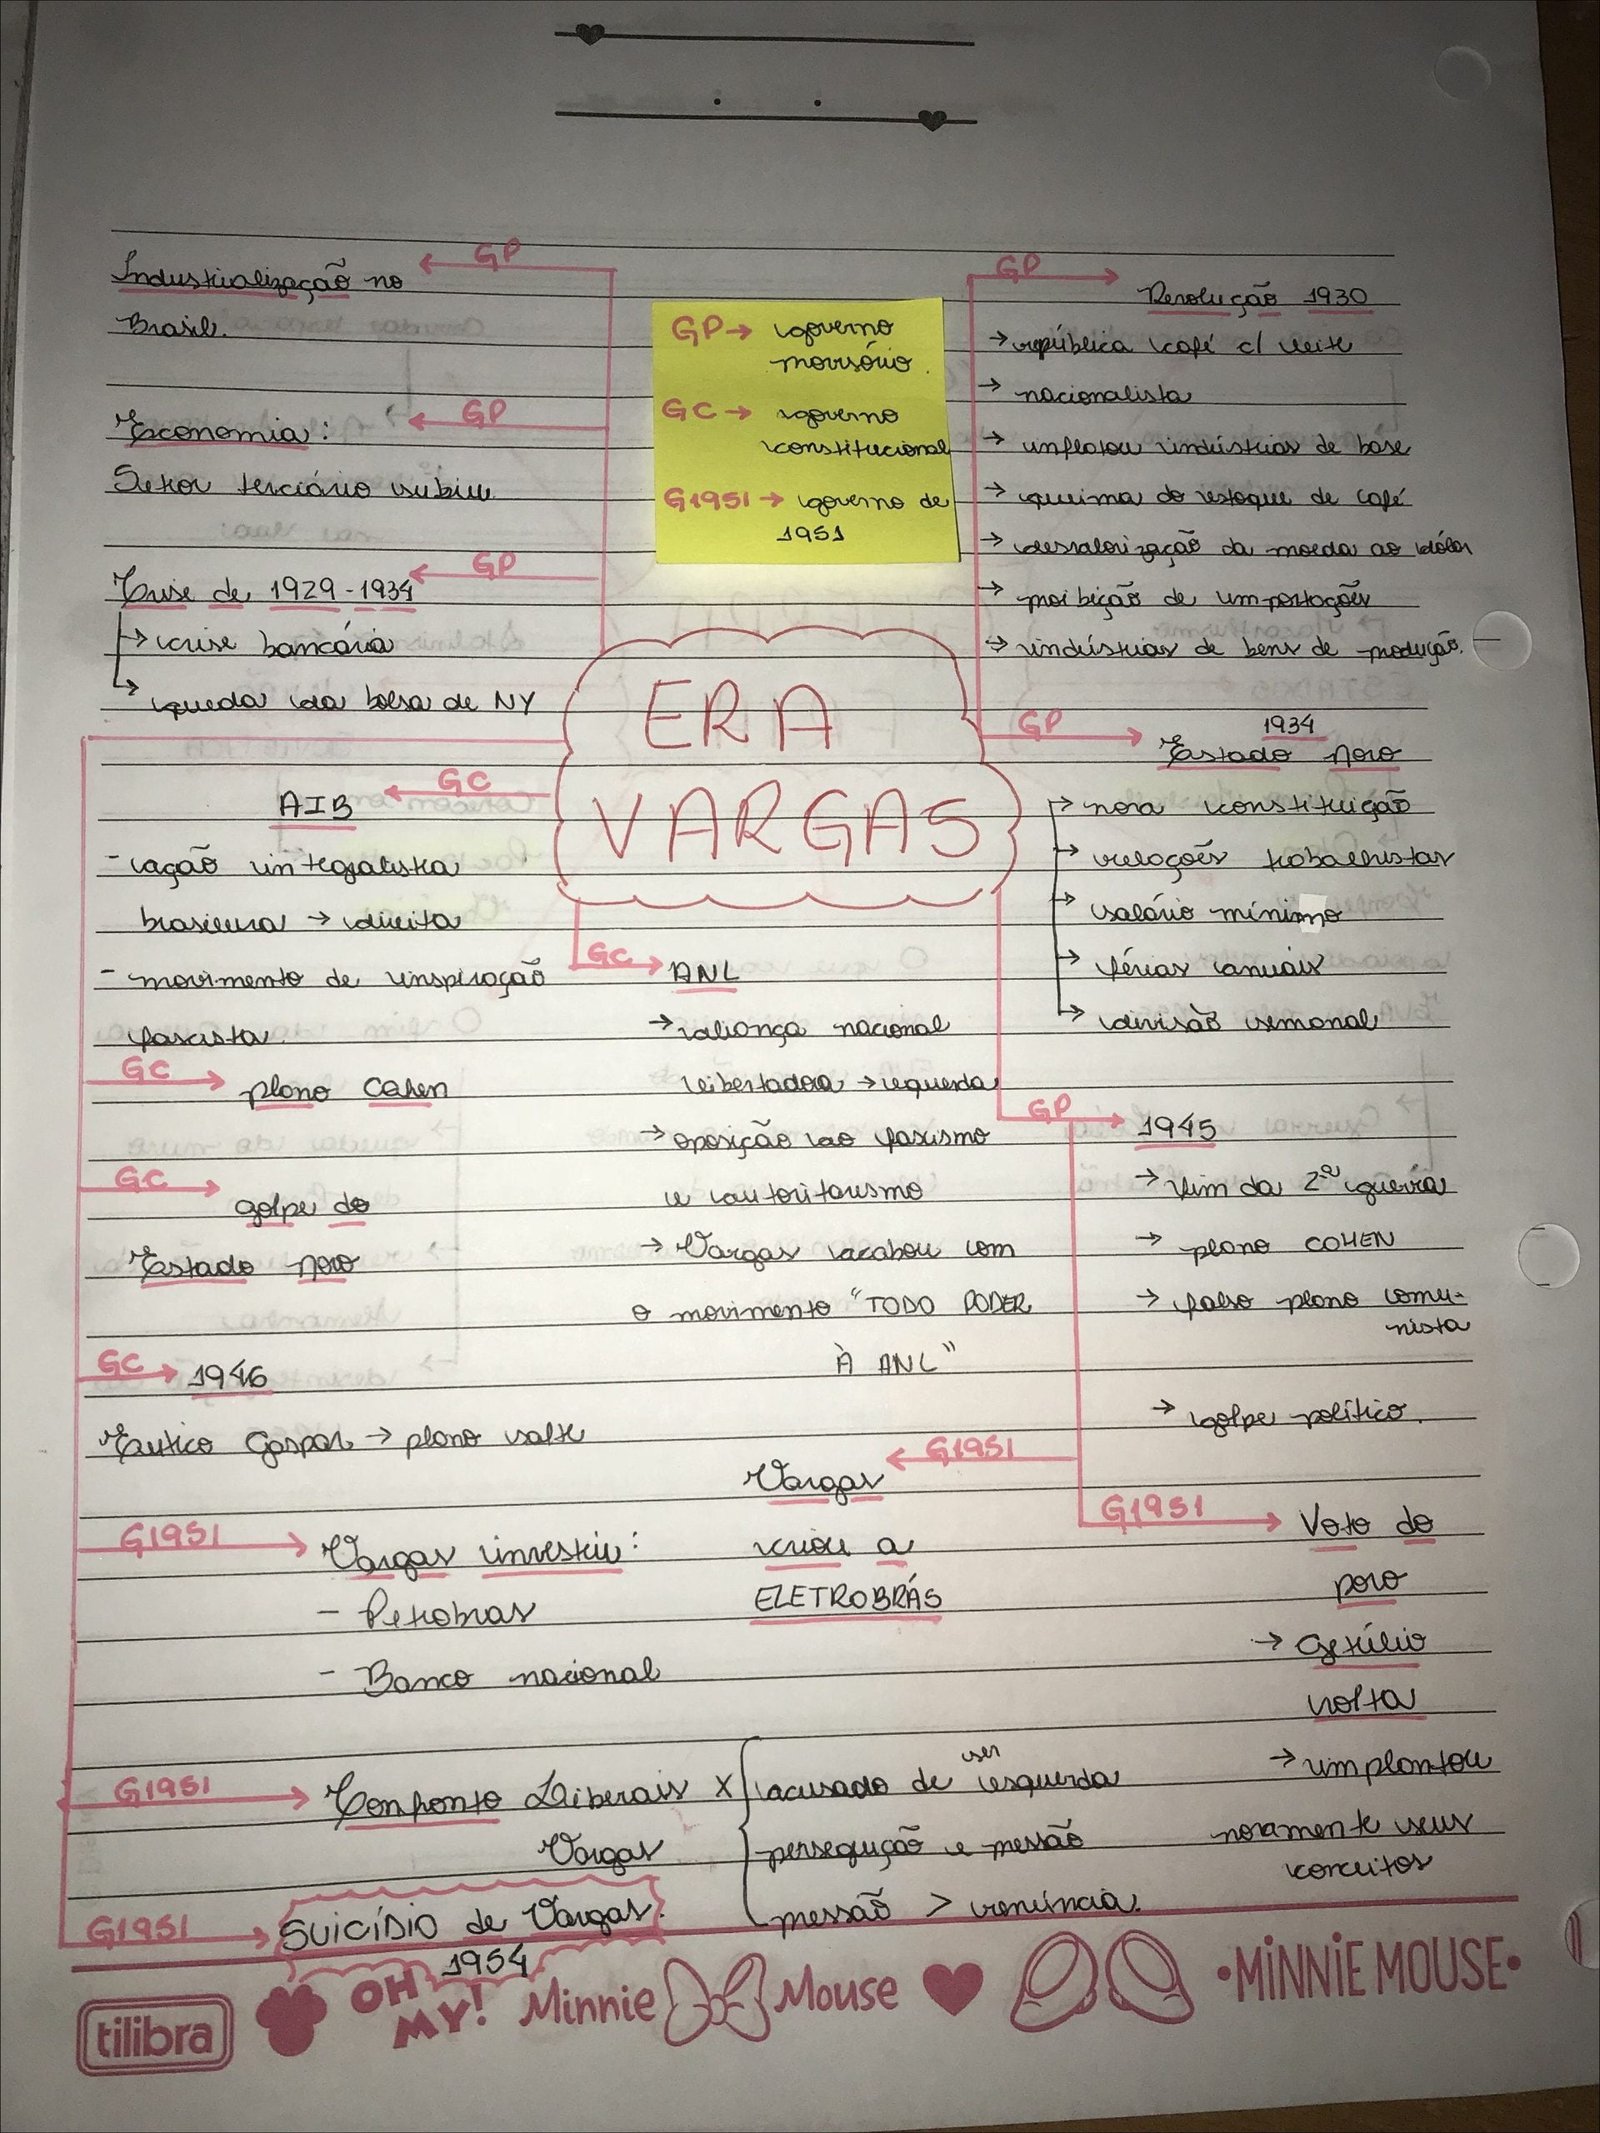 GP
Industrialização no
Brasil.
GP
Economia:
Setor terciário subiu
GP
Crise de 1929-1934
→ crise bancária
→ queda da bolsa de NY
GP → governo
provisório.
GC → governo
constitucional
G1951 → governo de
1951
GP
Revolução 1930
→ república café c/ leite
→ nacionalista
→ implatou indústrias de base
→ queima do estoque de café
→ desvalorização da moeda ao dólar
→ proibição de importações
→ indústrias de bens de produção.
ERA
VARGAS
GP
1934
Estado novo
→ nova constituição
→ relações trabalhistas
→ salário mínimo
→ férias anuais
→ divisão semanal
GC
AIB
- ação integralista
brasileira → direita
- movimento de inspiração
fascista.
GC
plano Cohen
GC
golpe do
Estado novo
GC
1946
Eurico Gaspar → plano salte
GC
ANL
→ aliança nacional
libertadora → esquerda
→ oposição ao fascismo
e autoritarismo
→ Vargas acabou com
o movimento "TODO PODER
À ANL"
GP
1945
→ fim da 2ª guerra
→ plano COHEN
→ falso plano comu-
nista
→ golpe político.
G1951
Vargas
criou a
ELETROBRÁS
G1951
Voto do
povo
→ Getúlio
volta
→ implantou
novamente seus
conceitos
G1951
Vargas investiu:
- Petrobras
- Banco nacional
G1951
Confronto Liberais X
Vargas
acusado de ser esquerda
persequção e pressão
pressão > renúncia.
G1951
SUICÍDIO de Vargas.
1954
tilibra
OH MY!
Minnie Mouse
•MiNNiE MOUSE•